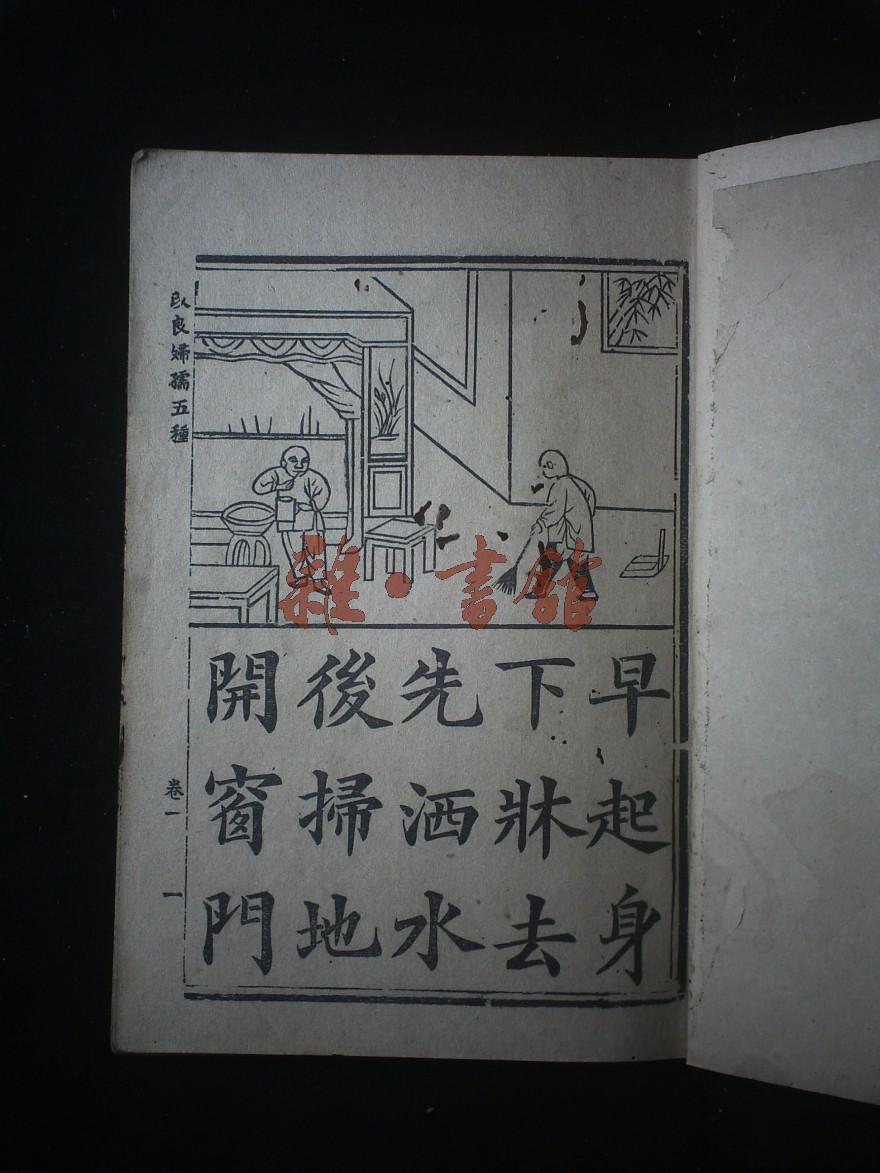 早起身
下牀去
先洒水
後掃地
開窗門
良婦孺五種
卷一
一
雜·書館